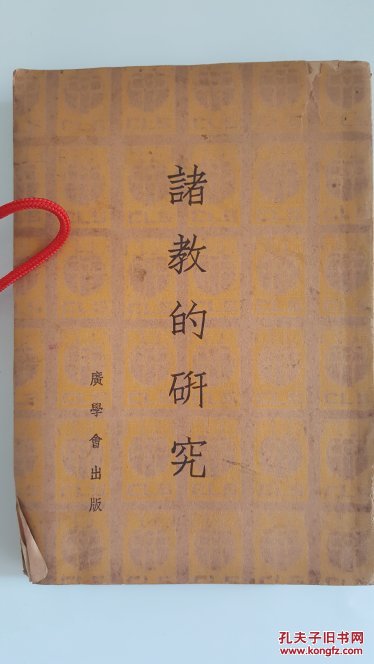 諸教的研究
廣學會出版
孔夫子旧书网
www.kongfz.com